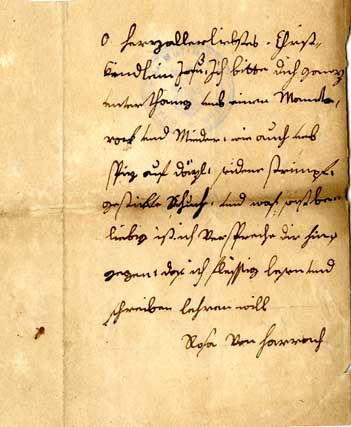 O herzallerliebstes Christ-
kendlein Jesu, Ich bitte dich ganz
unterthänig umb einen Mante-
rock und Mieder, wie auch umb
Spiz auf, seidene strimpf,
gestickte Schuch, und was
liebes ist, ich verspreche dir hin-
gegen, das ich fleissig lesen und
schreiben lehrnen will
Rosa Von Harrach